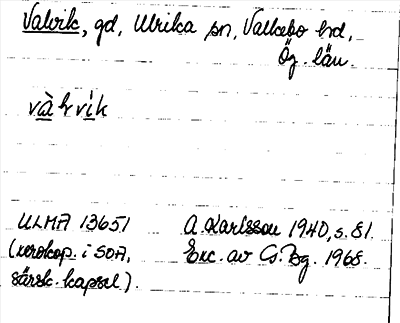 Valvik, gd, Ulrika sn, Valkebo hd,
Ög. län.
và l vi̇k
ULMA 13651 A. Karlsson 1940, s. 81.
(xerokop. i SOA, Exc. av G. Bg. 1968.
särsk. kapsel).